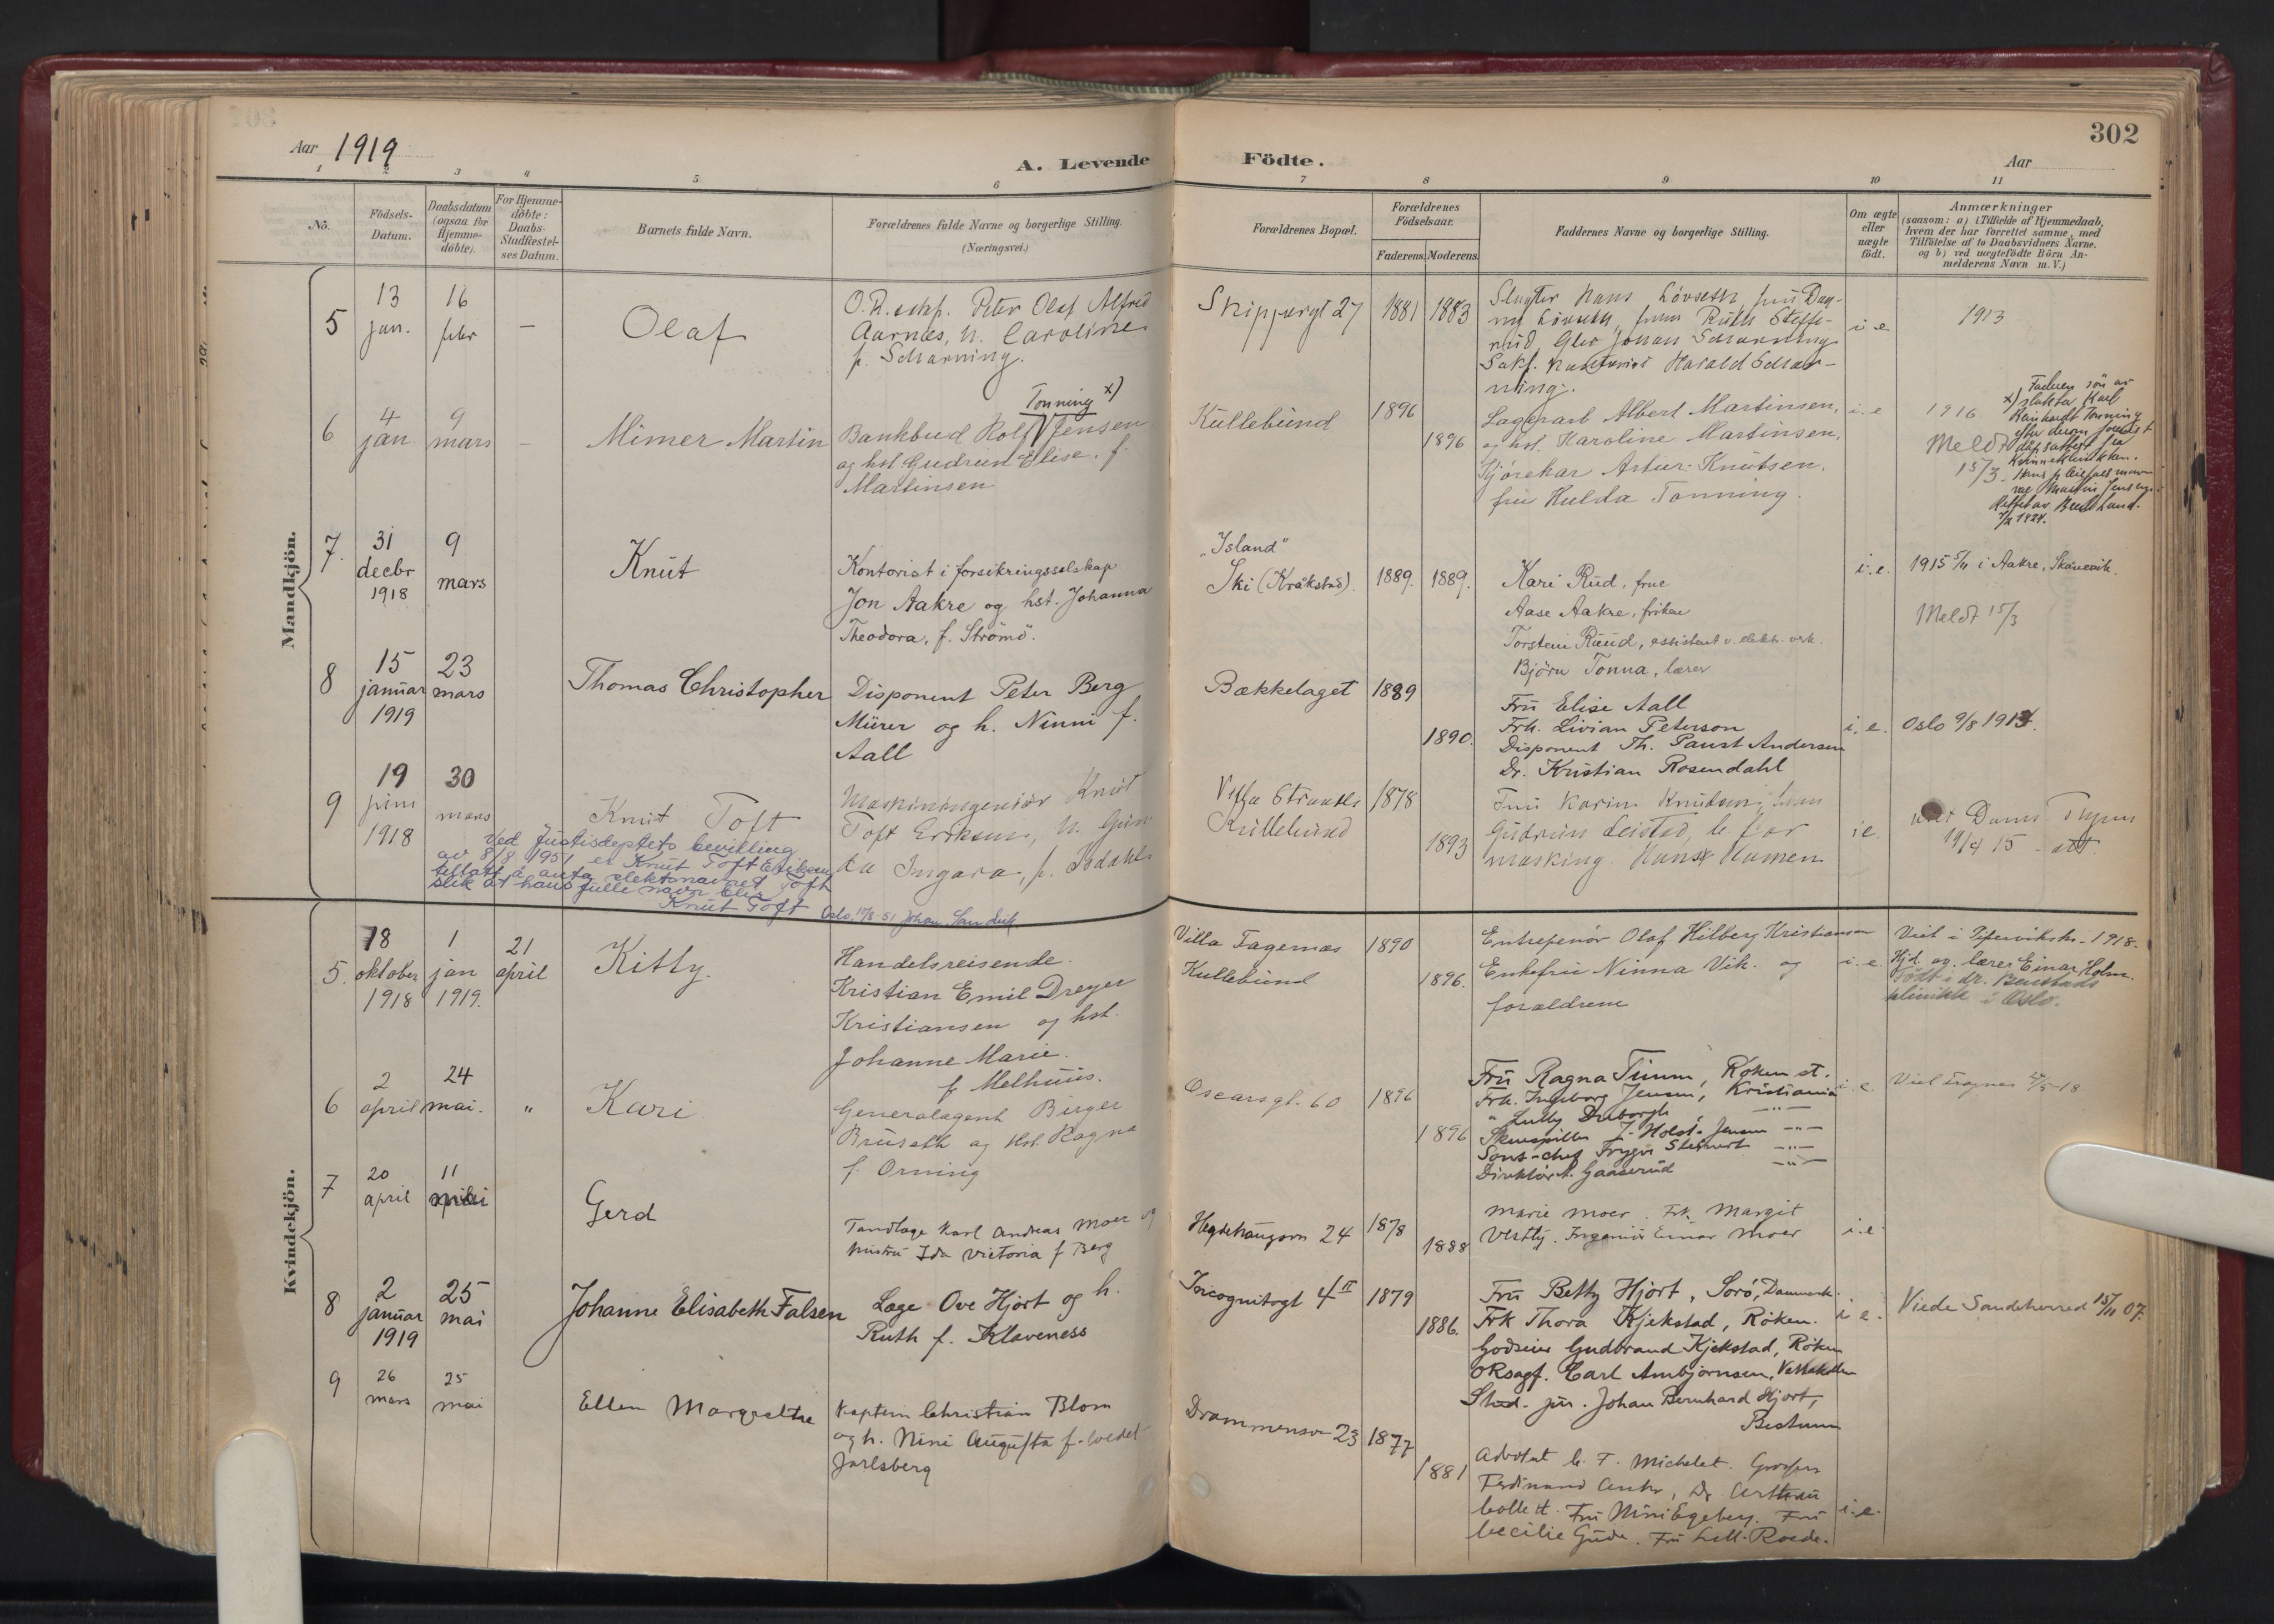 302
Aar 1919
A. Levende Födte.
Aar
1 2 3 4 5 6 7 8 9 10 11
No.
Födsels-
Datum.
Daabsdatum
(ogsaa for
Hjemme-
döbte).
For Hjemme-
döbte:
Daabs-
Stadfæstel-
ses Datum.
Barnets fulde Navn.
Forældrenes fulde Navne og borgerlige Stilling.
(Næringsvei.)
Forældrenes Bopæl.
Forældrenes
Födselsaar.
Faderens. Moderens.
Faddernes Navne og borgerlige Stilling.
Om ægte
eller
uægte
födt.
Anmærkninger
(saasom: a) i Tilfælde af Hjemmedaab,
hvem der har forrettet samme, med
Tilföielse af to Daabsvidners Navne.
og b) ved uægtefödte Börn An-
melderens Navn m. V.)
Mandkjön.
5
13
jan.
16
febr
—
Olaf
Peter Olaf Alfred
Aarnæs, h. Caroline
f. Scharning.
Skippergt 27
1881
1883
Slagter Hans Lövseth, fru Dag-
ny Lövseth,
Johan Scharning
Harald Schar-
ning.
i e
1913
6
4
jan
9
mars
—
Mimer Martin
Tonning x)
Bankbud Rolf V Jensen
og hst Gudrun Elise. f.
Martinsen
Kullebund
1896
1896
Lagerarb Albert Martinsen,
og hst. Karoline Martinsen,
Kjörekar Artur Knutsen.
fru Hulda Tonning.
i. e
1916
Meldt
15/3
Faderen sön av
x) slakter Karl
Reinhardt Tonning
7/2 1924.
7.
31
decbr
1918
9
mars
Knut
Kontorist i forsikringsselskap
Jon Aakre og hst. Johanna
Theodora, f. Strömö.
"Island"
Ski (Kråkstad).
1889.
1889.
Kari Rud, frue
Aase Aakre, fröken
Torstein Ruud, assistent v. elektr. verk.
Björn Tonna, lærer
i. e.
1915 5/11 i Aakre, Skånevik.
Meldt 15/3
8
15
januar
1919
23
mars
Thomas Christopher
Disponent Peter Berg
Mürer og h. Ninni f.
Aall
Bækkelaget
1889
1890.
Fru Elise Aall
Frk. Livian Peterson
Disponent Th. Paust Andersen
Dr. Kristian Rosendahl
i. e.
Oslo 9/8 1913.
9
19
juni
1918
30
mars
Knut Toft
Maskiningeniör Knut
Toft Eriksen, h. Gun-
da Ingara, f. Isdahl
Kullebund
1878
1893
Fru Karin Knudsen,
Gudrun Leistad,
Hans Hansen
i e.
19/4 15
Ved Justisdeptets bevilling
av 8/8 1951 er Knut Toft Eriksen
tillatt å anta slektsnavnet Toft
slik at hans fulle navn blir
Knut Toft Oslo, 17/8-51 Johan
Kvindekjön.
5.
18
oktober
1918
1
jan
1919.
21
april
Kitty.
Handelsreisende.
Kristian Emil Dreyer
Kristiansen og hst.
Johanne Marie.
f. Melhuus.
Villa Fagernæs
Kullebund
1890
1896.
Entrepenör Olaf Hilberg Kristiansen
Enkefru Ninna Vik. og
forældrene
i. e.
Viet i Pipervikskr. 1918.
Hjd. av lærer Einar Holm.
Födt i dr. Bentstads
klinikk i Oslo.
6
2
april
24
mai.
"
Kari
Generalagent Birger
Bruseth og hst. Ragna
f. Orning
Oscarsgt. 60
1896
1896
Fru Ragna Timm, Röken st.
Frk. Ingeborg Jensen, Kristiania
" Lully
Skuespiller J. Holst-Jensen —"—
Sous-chef Trygve —"—
Direktör Gaaserud —"—
i. e.
Viet Uranes
7
20
april
11
mai
Gerd
Tandlæge Karl Andreas Moer og
hustru Ida Victoria f Berg
Hegdehaugsvn 24
1878
1888
Marie Moer. Frk. Margit
Vestby. Ingeniör Einar Moer
i. e.
8
2
januar
1919
25
mai
Johanne Elisabeth Falsen
Læge Ove Hjort og h.
Ruth f. Klaveness
Incognitogt 4 II
1879
1886.
Fru Betty Hjort, Sorö, Danmark.
Frk Thora Kjekstad, Röken.
Godseier Gudbrand Kjekstad, Röken
ORsagf. Carl Ambjörnsen, Vettakollen
Stud. jur. Johan Bernhard Hjort,
Bestum
i e.
Viede Sandeherred 15/11 07.
9
26
mars
25
mai
Ellen Margrethe
Kaptein Christian Blom
og h. Nini Augusta f. Wedel
Jarlsberg
Drammensv 23
1877
1881
Advokat C. F. Michelet. Grosserer
Ferdinand Anker, Dr. Arthur
Collett. Fru Mini Egeberg. Fru
Cecilie Gude. Fru Lell. Roede.
i. e.